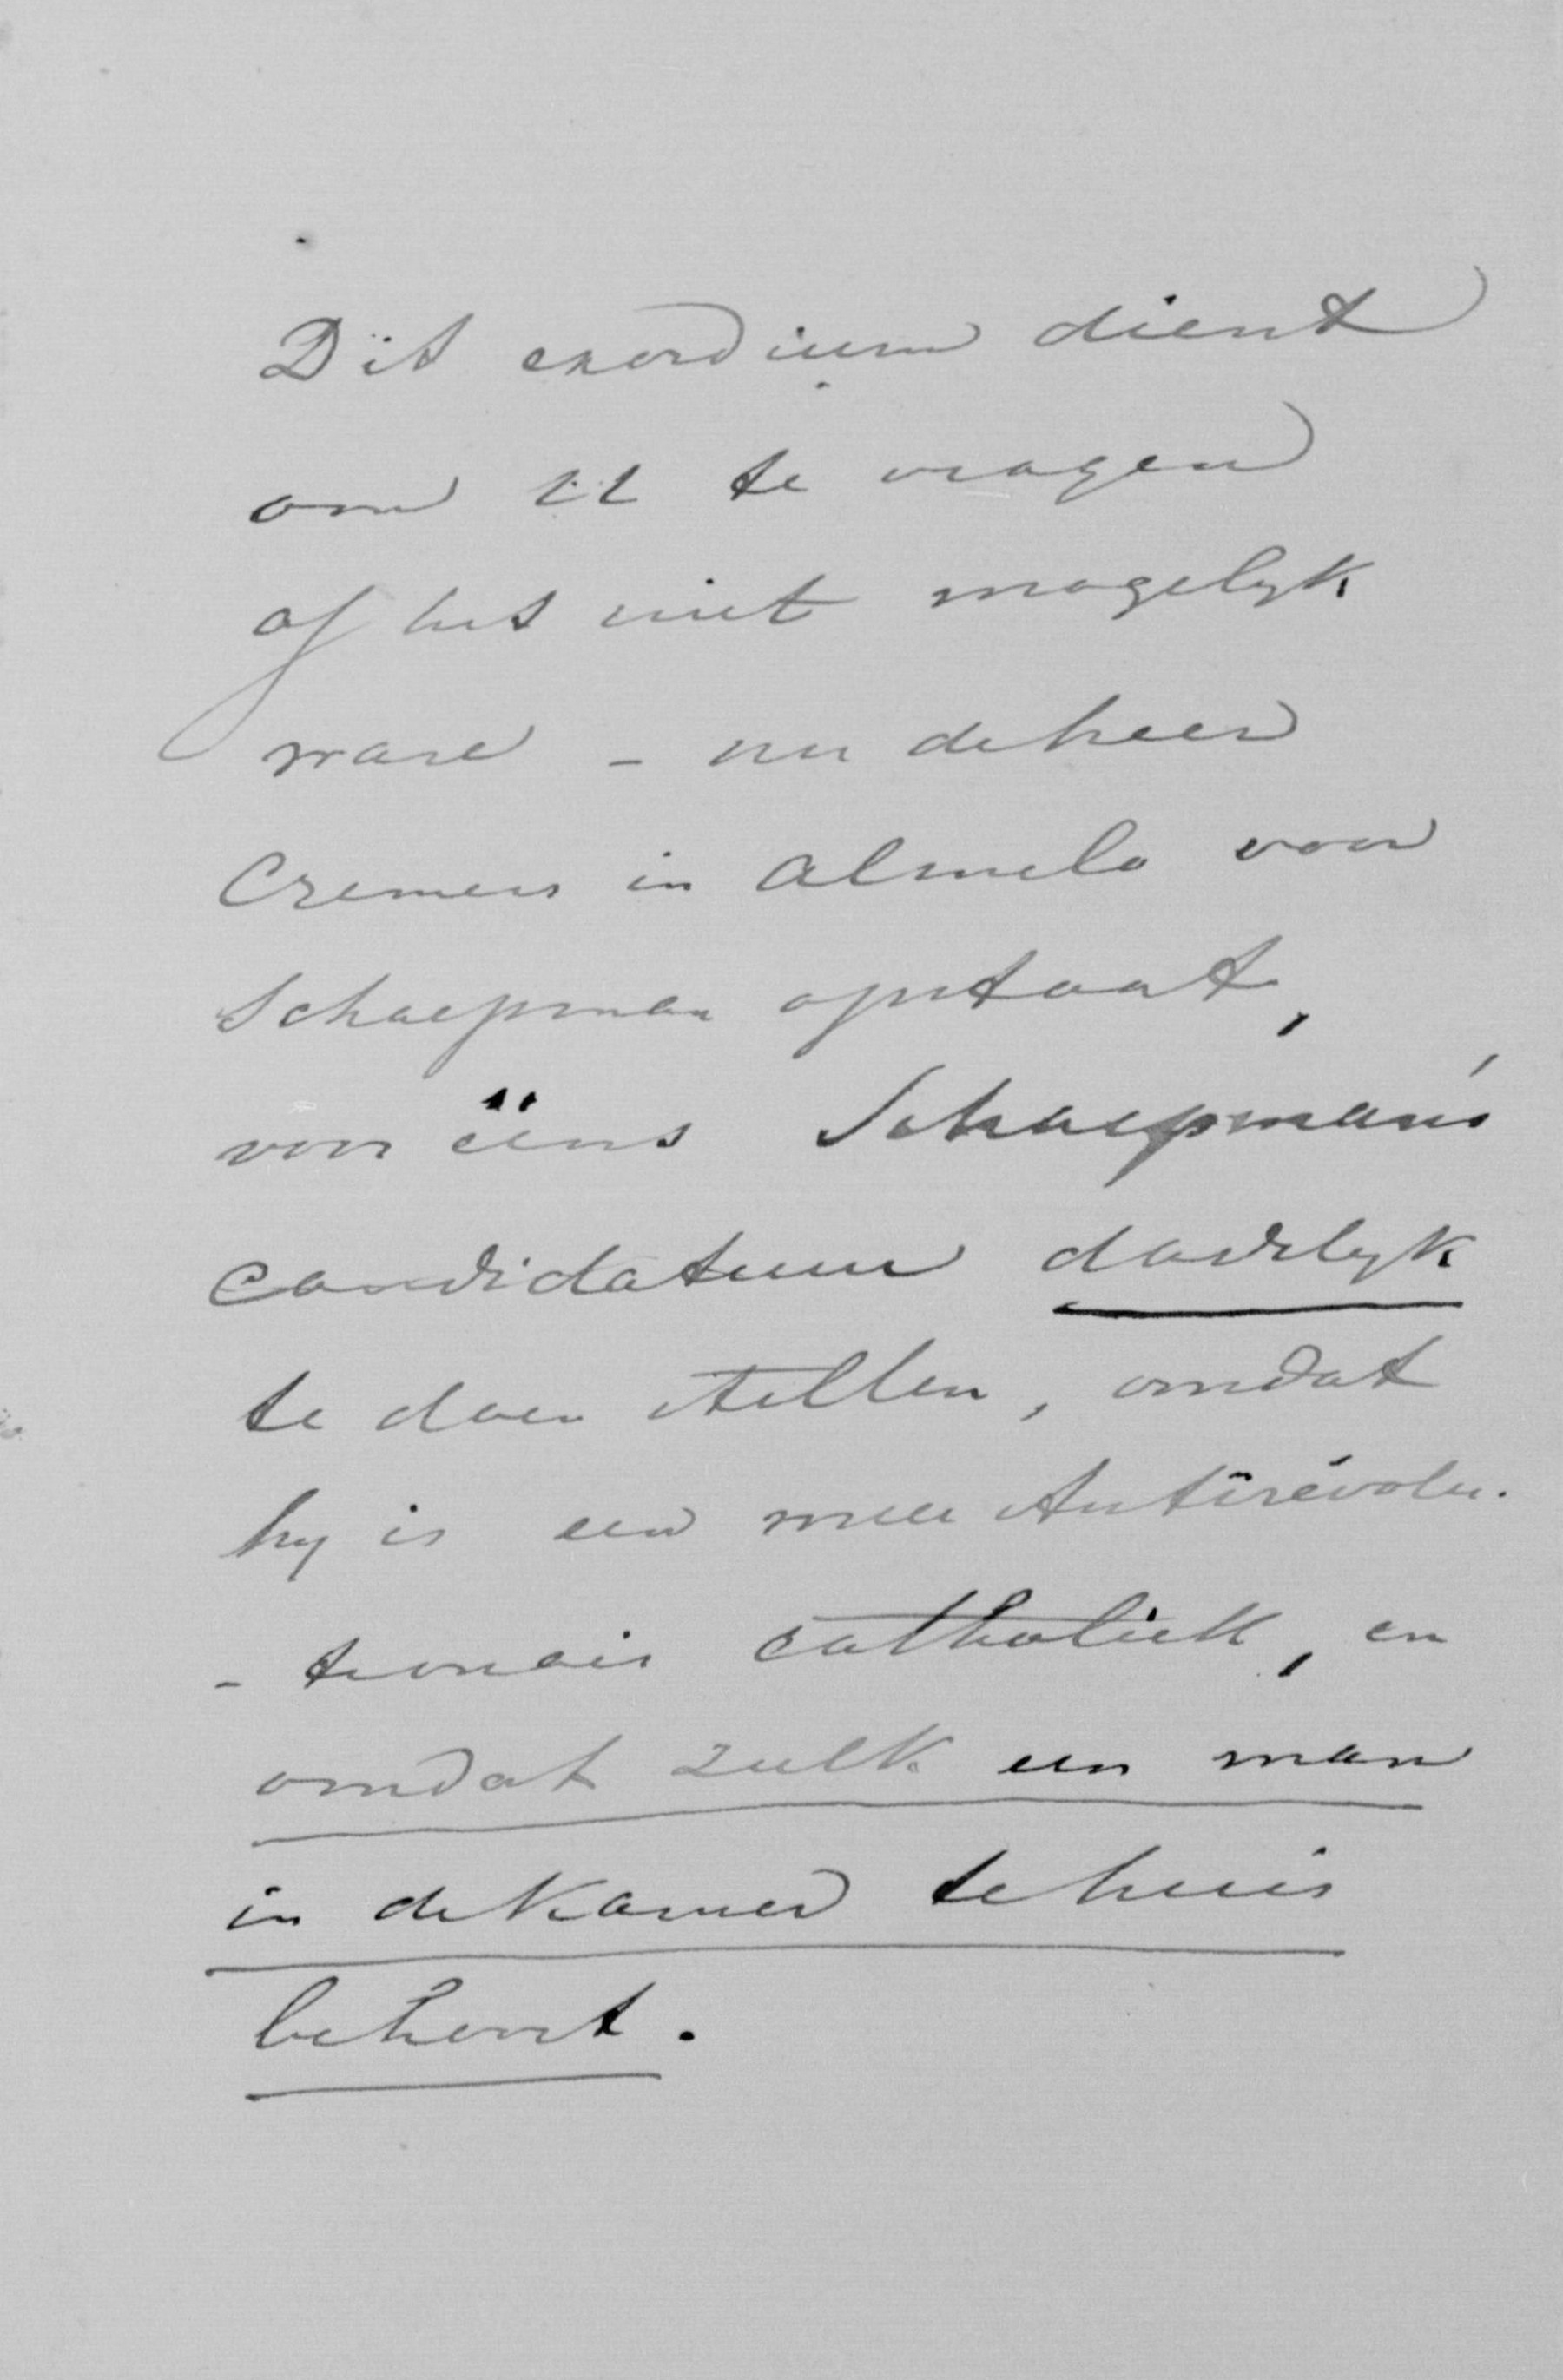 Dit exordium dient
om U te vragen
of het niet mogelyk
ware - nu de heer
Cremers in Almelo voor
Schaepman opstaat,
voor ééns Schaepman's
candidatuur dadelyk
te doen stellen, omdat
hy is een Antirevolu-
-tionair catholiek, en
omdat zulk een man
in de Kamer te huis
behoort.